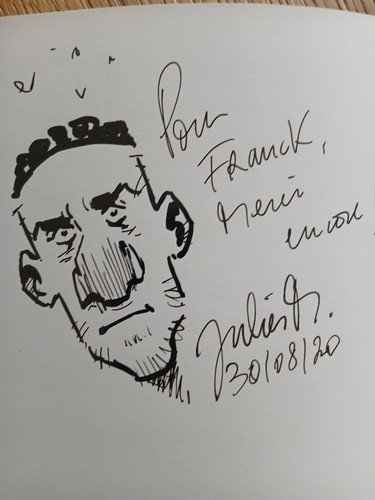 Pour
Franck,
Merci
encore
Julien M.
30/08/20